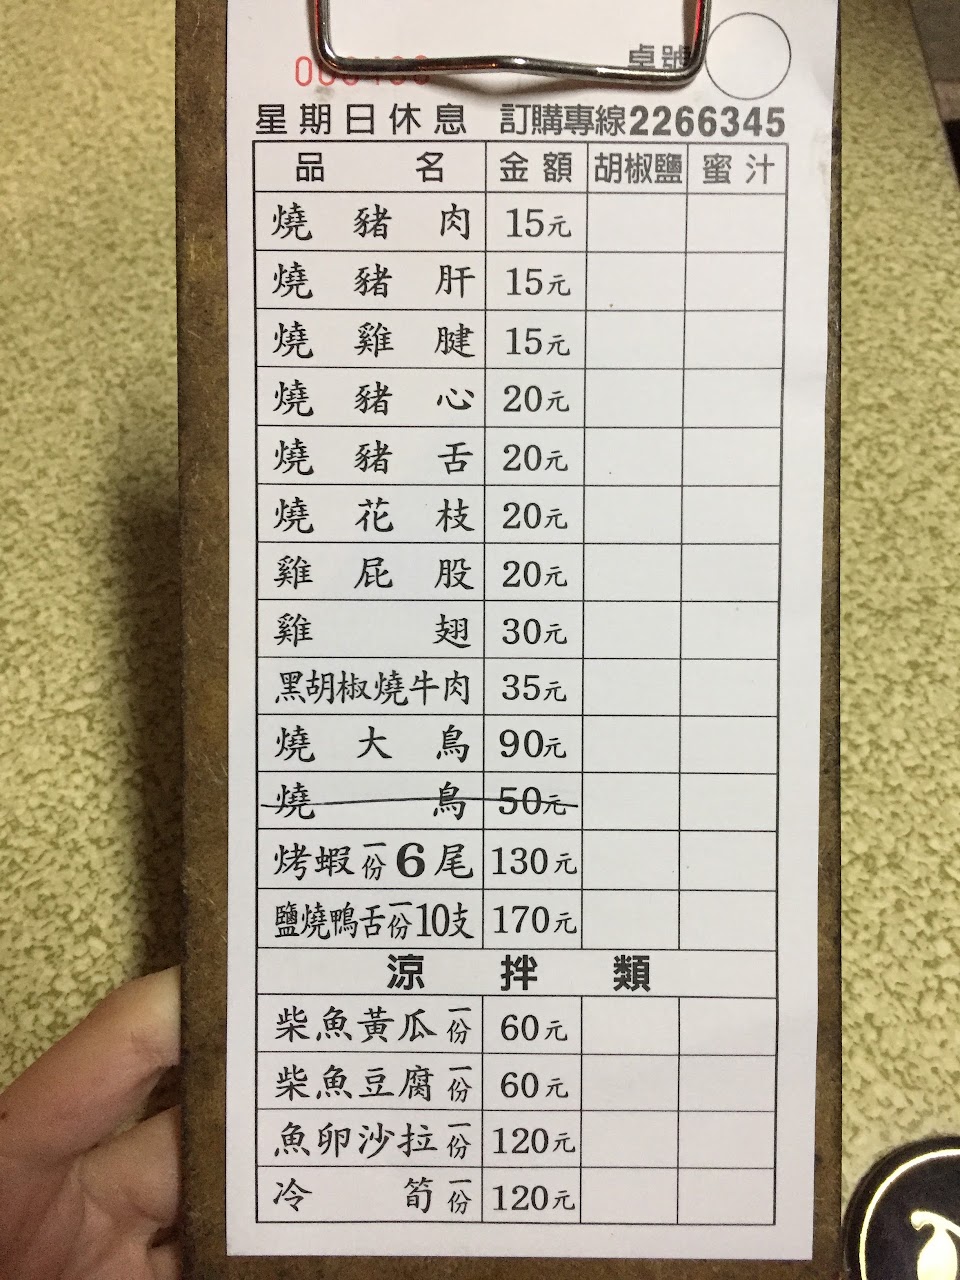 桌號
星期日休息 訂購專線2266345
品名 金額 胡椒鹽 蜜汁
燒豬肉 15元
燒豬肝 15元
燒雞腱 15元
燒豬心 20元
燒豬舌 20元
燒花枝 20元
雞屁股 20元
雞翅 30元
黑胡椒燒牛肉 35元
燒大鳥 90元
燒鳥 50元
烤蝦一份6尾 130元
鹽燒鴨舌一份10支 170元
涼拌類
柴魚黃瓜一份 60元
柴魚豆腐一份 60元
魚卵沙拉一份 120元
冷筍一份 120元